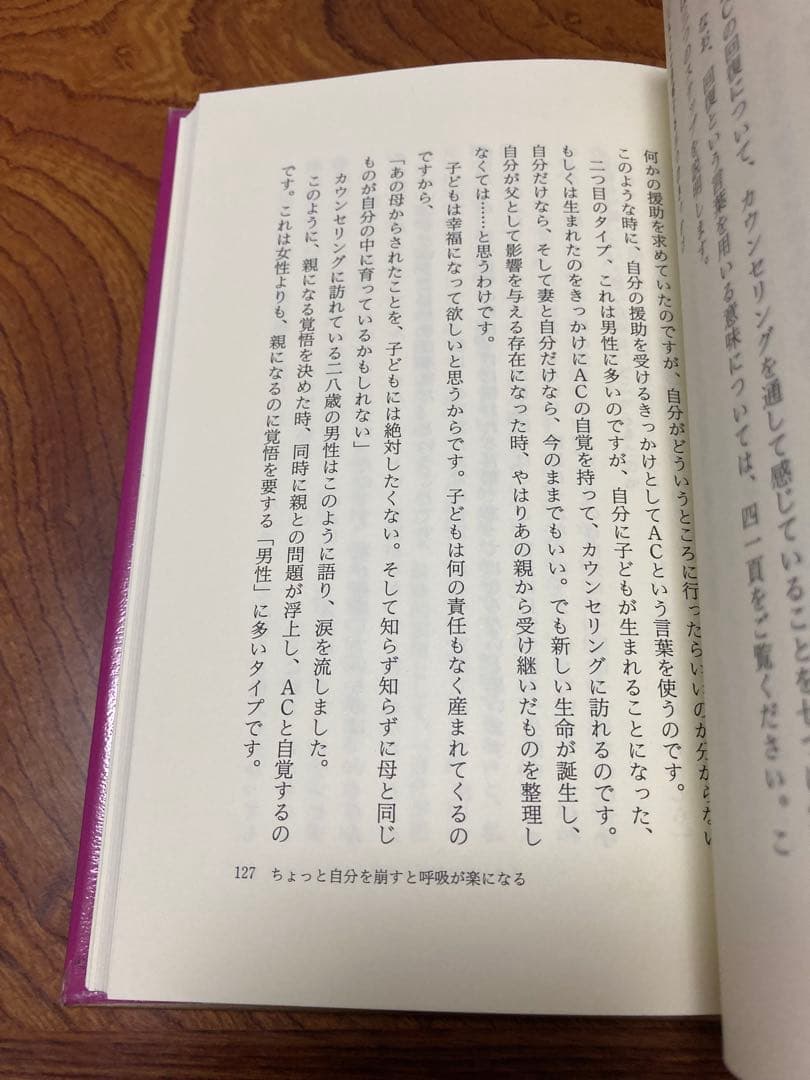 Cの回復について、カウンセリングを通して感じていることを
なお、回復という言葉を用いる意味については、四一頁をご覧ください。こ
何かの援助を求めていたのですが、自分がどういうところに行ったらいいのか分からない
このような時に、自分の援助を受けるきっかけとしてACという言葉を使うのです。
二つ目のタイプ、これは男性に多いのですが、自分に子どもが生まれることになった、
もしくは生まれたのをきっかけにACの自覚を持って、カウンセリングに訪れるのです。
自分だけなら、そして妻と自分だけなら、今のままでもいい。でも新しい生命が誕生し、
自分が父として影響を与える存在になった時、やはりあの親から受け継いだものを整理し
なくては……と思うわけです。
子どもは幸福になって欲しいと思うからです。子どもは何の責任もなく産まれてくるの
ですから、
「あの母からされたことを、子どもには絶対したくない。そして知らず知らずに母と同じ
ものが自分の中に育っているかもしれない」
カウンセリングに訪れている二八歳の男性はこのように語り、涙を流しました。
このように、親になる覚悟を決めた時、同時に親との問題が浮上し、ACと自覚するの
です。これは女性よりも、親になるのに覚悟を要する「男性」に多いタイプです。
127 ちょっと自分を崩すと呼吸が楽になる